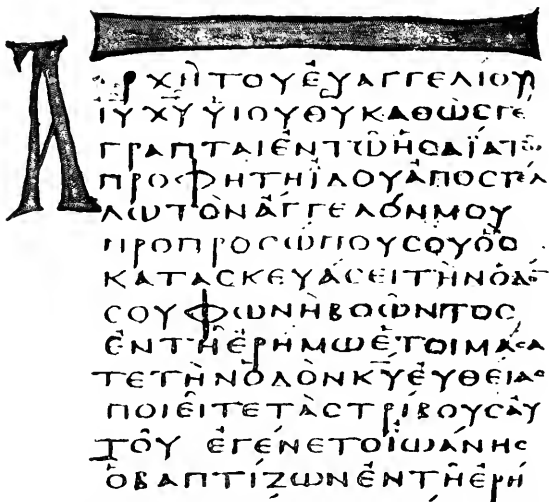 ΑΡΧΗ ΤΟΥ ΕΥΑΓΓΕΛΙΟΥ
ΙΥ ΧΥ ΥΙΟΥ ΘΥ ΚΑΘΩΣ ΓΕ
ΓΡΑΠΤΑΙ ΕΝ ΤΩ ΗΣΑΪΑ ΤΩ
ΠΡΟΦΗΤΗ ΪΔΟΥ ΑΠΟΣΤΕΛ
ΛΩ ΤΟΝ ΑΓΓΕΛΟΝ ΜΟΥ
ΠΡΟ ΠΡΟΣΩΠΟΥ ΣΟΥ ΟΣ
ΚΑΤΑΣΚΕΥΑΣΕΙ ΤΗΝ ΟΔΟΝ
ΣΟΥ ΦΩΝΗ ΒΟΩΝΤΟΣ
ΕΝ ΤΗ ΕΡΗΜΩ ΕΤΟΙΜΑΣΑ
ΤΕ ΤΗΝ ΟΔΟΝ ΚΥ ΕΥΘΕΙΑΣ
ΠΟΙΕΙΤΕ ΤΑΣ ΤΡΙΒΟΥΣ ΑΥ
ΤΟΥ ΕΓΕΝΕΤΟ ΪΩΑΝΗΣ
Ο ΒΑΠΤΙΖΩΝ ΕΝ ΤΗ ΕΡΗ